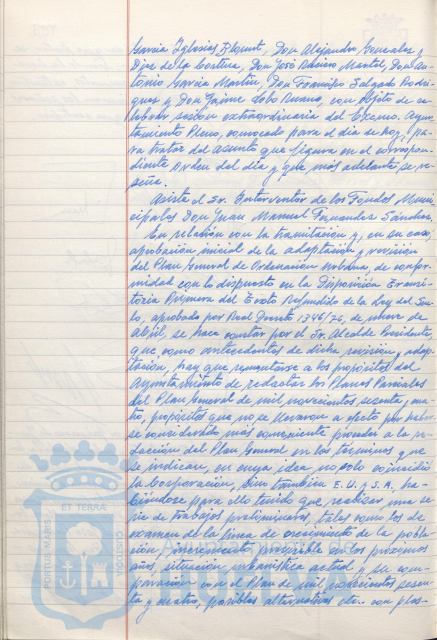 García Iglesias Blaquet, Don Alejandro Gonzalez y
Diez de la Cortina, Don José Ramiro Martel, Don An-
tonio García Martín, Don Francisco Salgado Rodrí-
guez y Don Jaime Lobo Ruano, con objeto de ce-
lebrar sesión extraordinaria del Excmo. Ayun-
tamiento Pleno, convocado para el día de hoy, pa-
ra tratar del asunto que figura en el correspon-
diente Orden del día y que más adelante se re-
seña.
Asiste el Sr. Interventor de los Fondos Muni-
cipales Don Juan Manuel Fernandez Sánchez.
En relación con la tramitación y, en su caso,
aprobación inicial de la adaptación y revisión
del Plan General de Ordenación Urbana, de confor-
midad con lo dispuesto en la Disposición Transi-
toria Primera del Texto Refundido de la Ley del Sue-
lo, aprobado por Real Decreto 1346/76, de nueve de
abril, se hace constar por el Sr. Alcalde Presidente,
que como antecedentes de dicha revisión y adap-
tación, hay que remontarse a los propósitos del
Ayuntamiento de redactar los Planes Parciales
del Plan General de mil novecientos sesenta y cua-
tro, propósitos que no se llevaron a efecto por haber-
se considerado más conveniente proceder a la re-
dacción del Plan General en los términos que
se indican, en cuya idea no solo coincidió
la Corporación, sino también E.U.S.A. ha-
biéndose para ello tenido que realizar una se-
rie de trabajos preliminares, tales como los de
examen de la línea de crecimiento de la pobla-
ción, incremento previsible en los próximos
años, situación urbanística actual y su com-
paración con el Plan de mil novecientos sesen-
ta y cuatro, posibles alternativas etc. con plas-
PORTUS MARIS
ET TERRAE
CUSTODIA